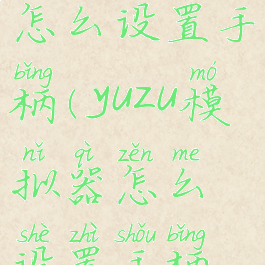 怎么设置手
bǐng mó
柄(yuzu模
nǐ qì zěn me
拟器怎么
shè zhì shǒu bǐng
设置手柄